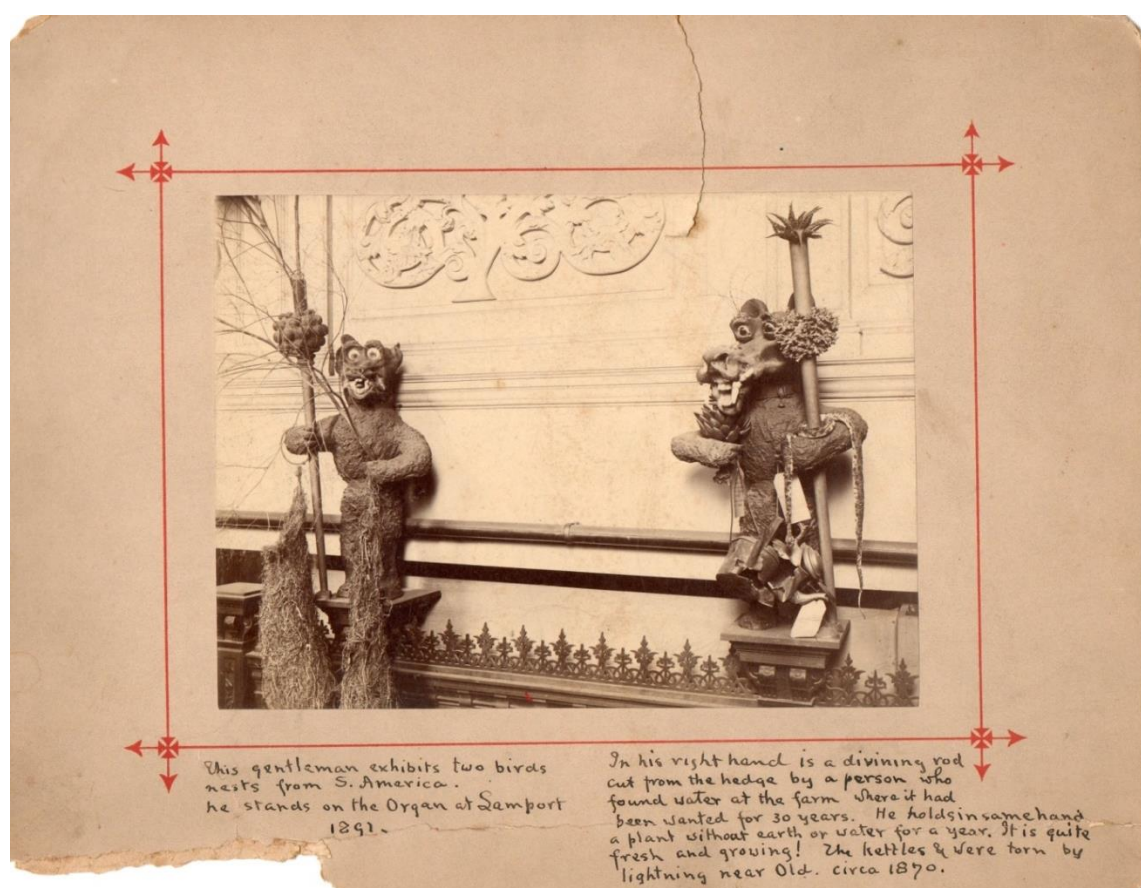 This gentleman exhibits two birds
nests from S. America.
he stands on the Organ at Lamport
1891.
In his right hand is a divining rod
cut from the hedge by a person who
found water at the farm where it had
been wanted for 30 years. He holds in same hand
a plant without earth or water for a year. It is quite
fresh and growing! The kettles & were torn by
lightning near Old. circa 1870.